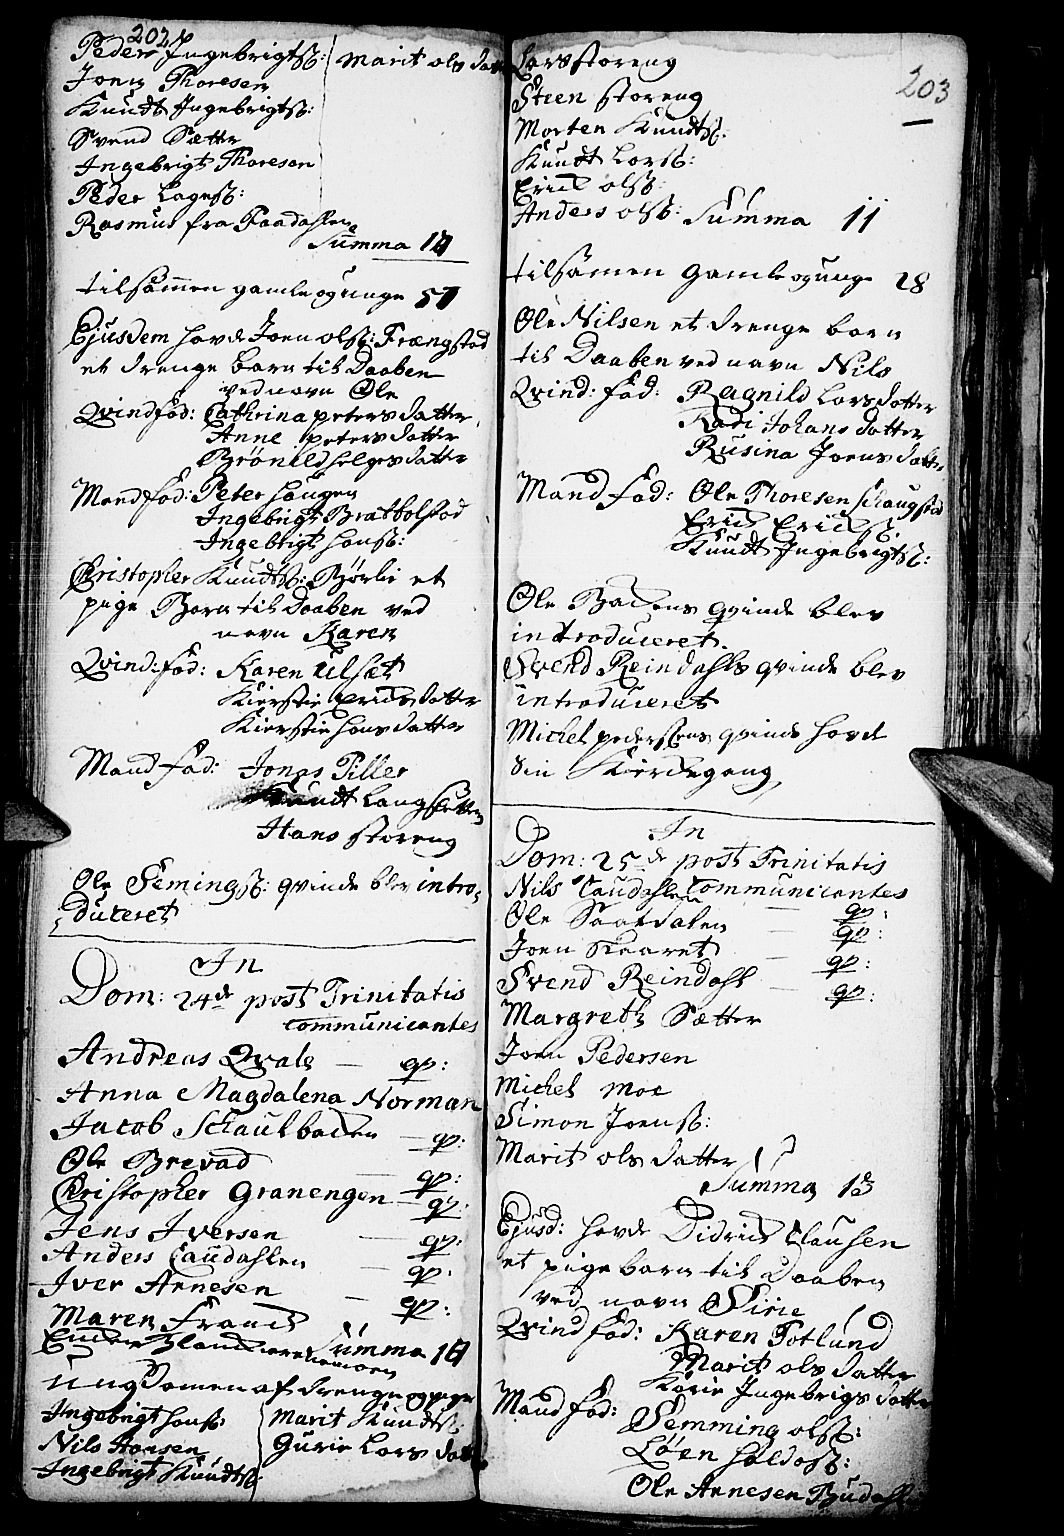 202
Peder Ingebrigtß: Marit olsdatter
Joen Thoresen
Knudt Ingebrigtß:
Svend Sætter
Ingebrigt Thoresen
Peder Lagesß:
Rasmus fra Faadahlen
Summa
tilsammen gamle og unge
Ejusdem hafde Joen olsß: Frængstad
et drenge barn til Daaben
ved navn Ole
Qvindfad: Cathrina petersdatter
Anne petersdatter
Brønild helgesdatter
Mandfad: Peter haugen
Ingebrigt Bratbolstad
Ingebrigt hansß:
Christopher Knudtß: Børlie et
pige Barn til Daaben ved
navn Karen
Qvind: fad: Karen Ulset
Kierstie Ericksdatter
Kierstie hansdatter
Mand fad: Jonas Piller
Knudt Langsletten
Hans storeng
Ole Semingsß: qvinde blev intro-
duceret
In
Dom: 24de post Trinitatis
communicantes
Andreas Qvale — qp:
Anna Magdalena Norman
Jacob Schaulbacken — qp:
Ole Brevad — qp:
Christopher Granengen — qp:
Jens Iversen — qp:
Anders Taudahlen — qp:
Iver Arnesen — qp:
Maren Franck
Summa
Ungdomen af drenge og piger
Ingebrigt hansß: Marit Knudtß:
Nils Hansen Gurie Larsdatter
Ingebrigt Knudtß:
203
Lars storeng
Steen storeng
Morten Knudtß:
Knudt Larsß:
Erick olsß:
Anders olsß: Summa 11
tilsamen gamle og unge 28
Ole Nilsen et drenge barn
til Daaben ved navn Nils
Qvind: fad: Ragnild Larsdatter
Kadi Johansdatter
Rusina Joensdatter
Mand fad: Ole Thoresen Schaugstad
Erick Ericksß:
Knudt Ingebrigtß:
Ole Backens qvinde blev
introduceret.
Svend Reindahls qvinde blev
introduceret
Michel pedersens qvinde hafde
sin Kierkegang
In
Dom: 25de post Trinitatis
communicantes
Nils Taudahlen — qp:
Ole Saatdalen — qp:
Joen Skaaret — qp:
Svend Reindahl — qp:
Margreth Sætter
Joen Pedersen
Michel moe
Simon Joensß:
Marit olsdatter
Summa 13
Ejusd: hafde Didrick Clausen
et pige barn til Daaben
ved navn Sirie
Qvind fad: Karen Totlund
Marit olsdatter
Karie Ingebrigsdatter
Mand fad: Semming olsß:
Joen haldosß:
Ole Arnesen Budahl